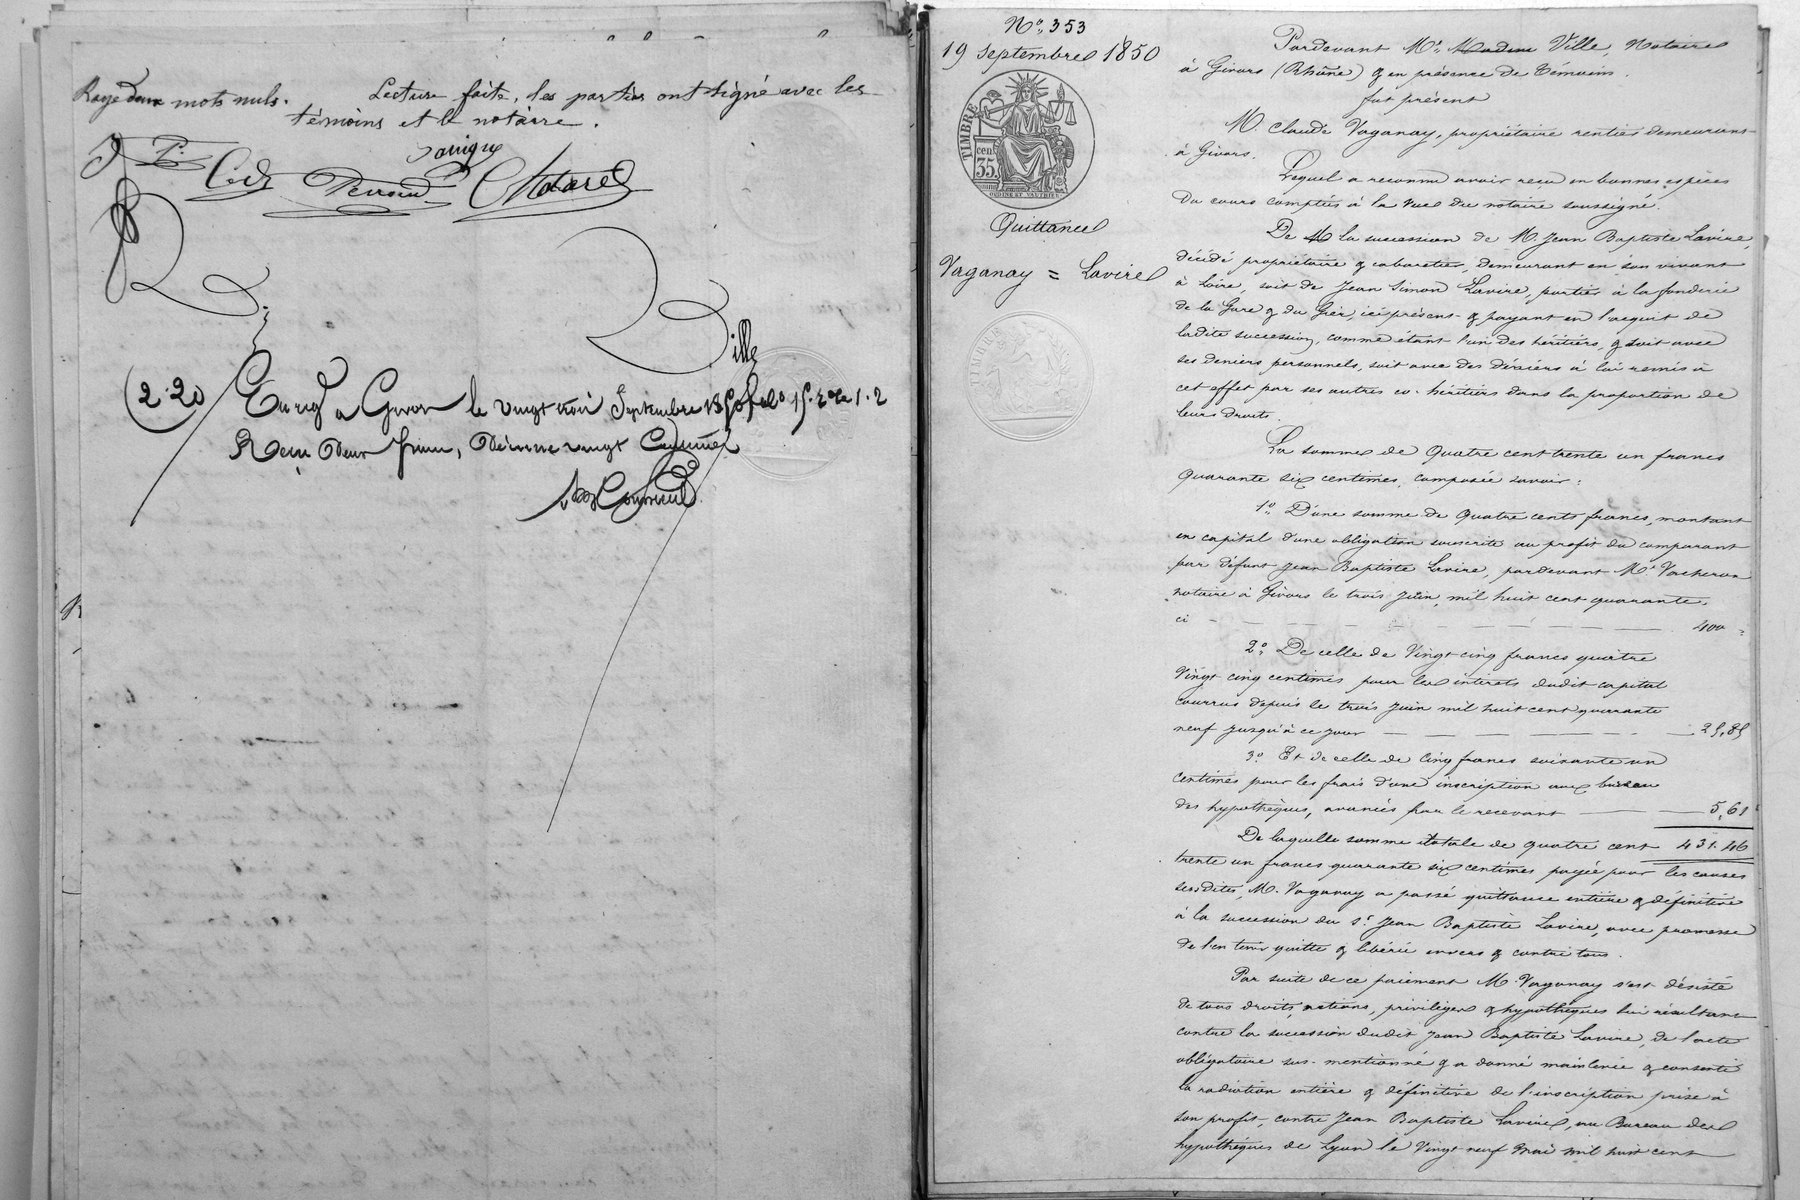 Rayé deux mots nuls.
Lecture faite, les parties ont signé avec les
témoins et le notaire.
Perroud
Ville
(2.20
Enreg à Givors le vingt trois Septembre 1850 fol 15. 2 Ce 1.2
Reçu Deux francs, Décime vingt Centimes
N° 353
19 Septembre 1850
TIMBRE
cen
35
Quittance
Vaganay = Lavire
TIMBRE
Pardevant Me Ville, Notaire
à Givors (Rhône) & en présence de témoins.
fut présent
M. Claude Vaganay, propriétaire rentier demeurant
à Givors.
Lequel a reconnu avoir reçu en bonnes espèces
du cours comptées à la vue du notaire soussigné.
De la succession de M. Jean Baptiste Lavire,
décédé propriétaire & cabaretier, demeurant en son vivant
à Loire, soit de Jean Simon Lavire, portier à la fonderie
de la Gare & du Gier, ici présent & payant en l'acquit de
ladite succession, comme étant l'un des héritiers, & soit avec
ses deniers personnels, soit avec des deniers à lui remis à
cet effet par ses autres co-héritiers dans la proportion de
leurs droits.
La somme de Quatre cent trente un francs
quarante six centimes, composée savoir:
1° D'une somme de Quatre cents francs, montant
en capital d'une obligation souscrite au profit du comparant
par défunt Jean Baptiste Lavire, pardevant Me Vacheron
notaire à Givors le trois Juin, mil huit cent quarante.
ci 400 "
2° De celle de Vingt cinq francs quatre
Vingt cinq centimes pour les intérets dudit capital
courrus depuis le trois Juin mil huit cent quarante
neuf jusqu'à ce jour 25,85
3° Et de celle de Cinq francs soixante un
centimes pour les frais d'une inscription aux bureau
des hypothèques, avancés par le recevant 5,61
De laquelle somme totale de quatre cent 431.46
trente un francs quarante six centimes payée pour les causes
susdites, M. Vaganay a passé quittance entière & définitive
à la succession du sr Jean Baptiste Lavire, avec promesse
de l'en tenir quitte & libérée envers & contre tous.
Par suite de ce paiement M. Vaganay s'est désisté
de tous droits, actions, privilèges & hypothèques lui résultant
contre la succession dudit Jean Baptiste Lavire, de l'acte
obligatoire sus-mentionné & a donné mainlevée & consenti
la radiation entière & définitive de l'inscription prise à
son profit, contre Jean Baptiste Lavire, au Bureau des
hypothèques de Lyon le Vingt neuf Mai mil huit cent